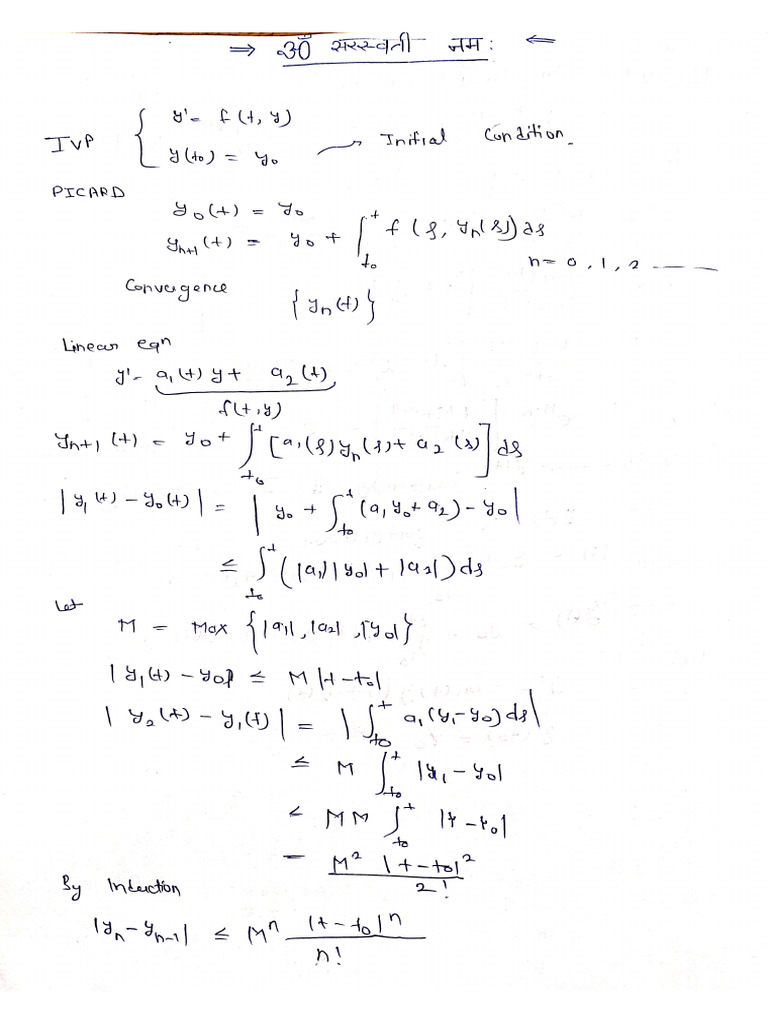 ⇒ ॐ सरस्वती नमः ⇐
IVP { y' = f(t, y)
y(t₀) = y₀ → Initial Condition.
PICARD
y₀(t) = y₀
yₙ₊₁(t) = y₀ + ∫ₜ₀ᵗ f(s, yₙ(s)) ds
n = 0, 1, 2 ———
Convergence {yₙ(t)}
Linear eqn
y' = a₁(t) y + a₂(t)
f(t, y)
yₙ₊₁(t) = y₀ + ∫ₜ₀ᵗ [a₁(s) yₙ(s) + a₂(s)] ds
|y₁(t) − y₀(t)| = |y₀ + ∫ₜ₀ᵗ (a₁ y₀ + a₂) − y₀|
≤ ∫ₜ₀ᵗ (|a₁| |y₀| + |a₂|) ds
Let
M = Max {|a₁|, |a₂|, |y₀|}
|y₁(t) − y₀| ≤ M |t − t₀|
|y₂(t) − y₁(t)| = |∫ₜ₀ᵗ a₁(y₁ − y₀) ds|
≤ M ∫ₜ₀ᵗ |y₁ − y₀|
≤ M M ∫ₜ₀ᵗ |t − t₀|
= M² |t − t₀|² / 2!
By Induction
|yₙ − yₙ₋₁| ≤ Mⁿ |t − t₀|ⁿ / n!